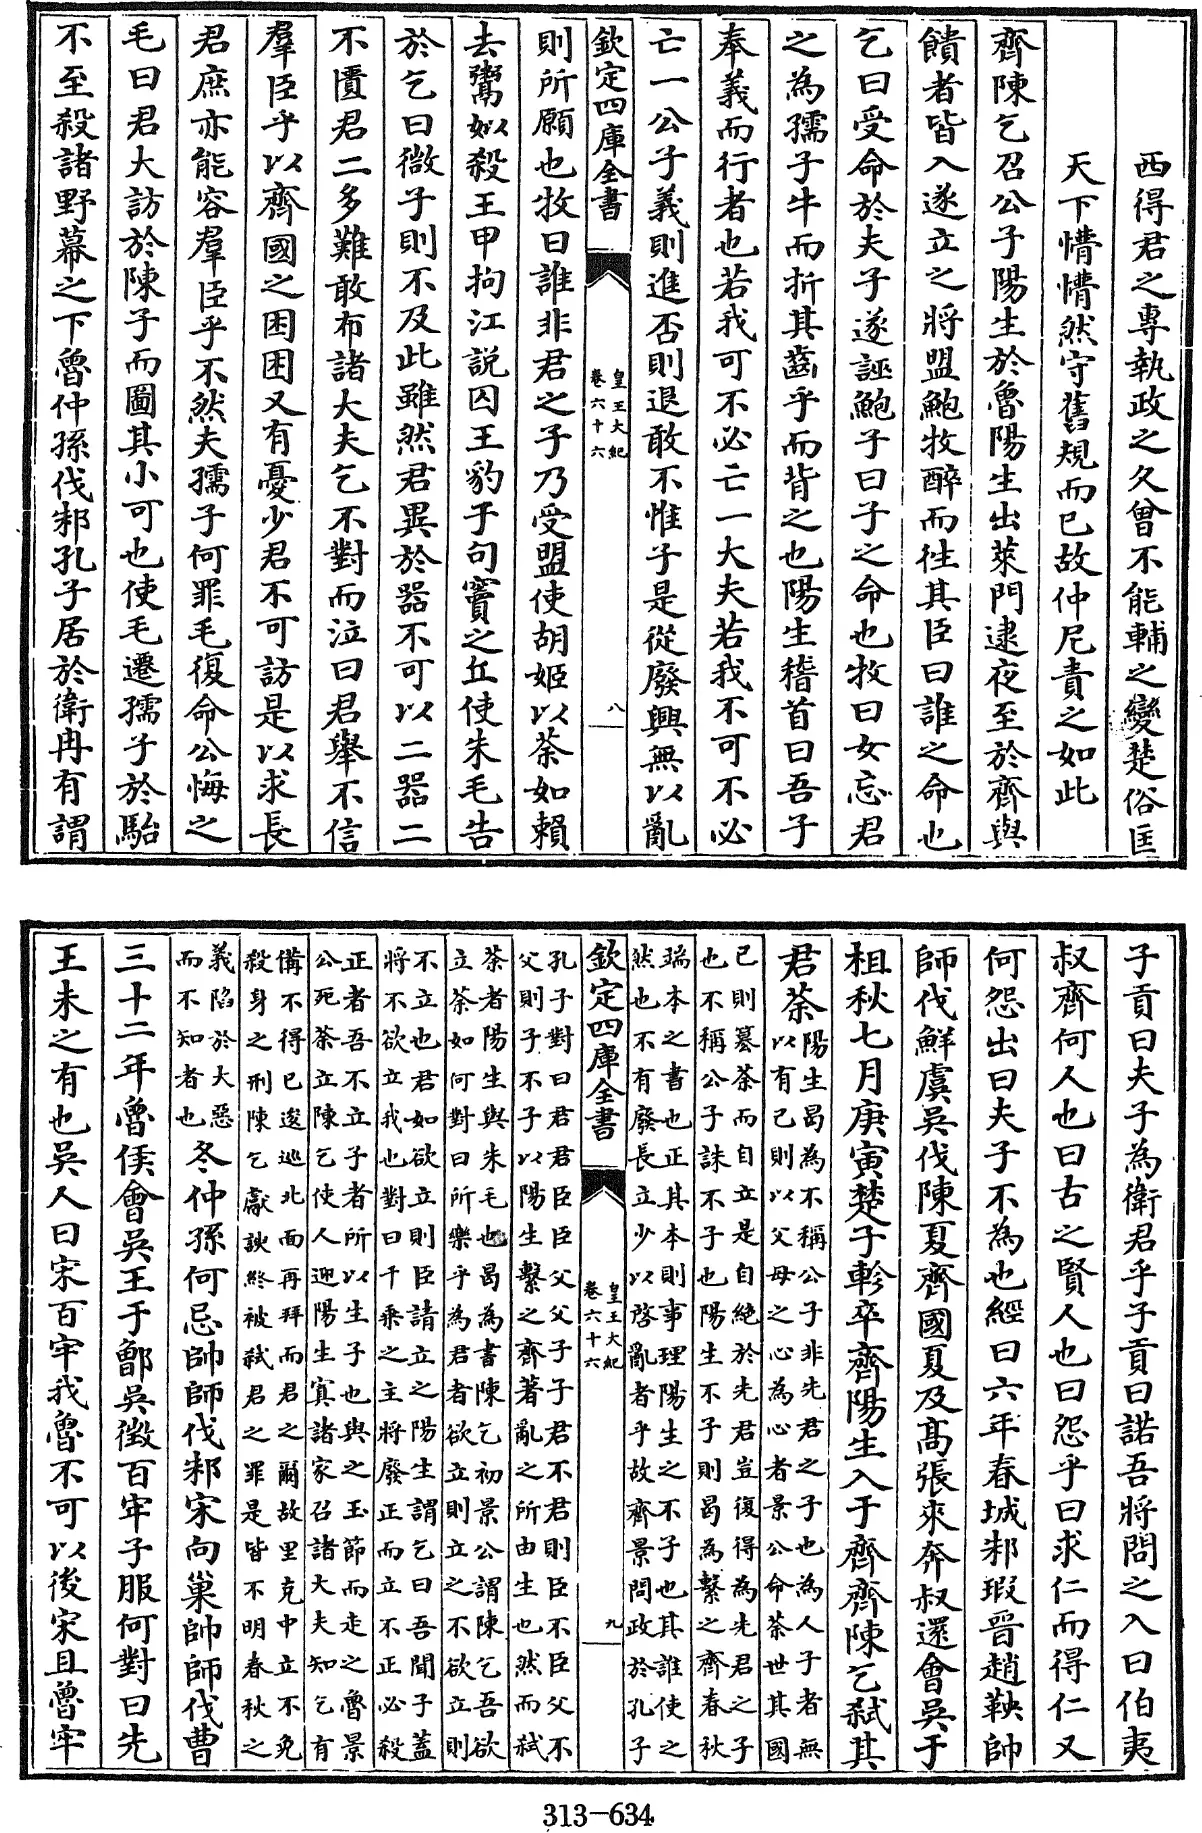 西得君之專執政之久曾不能輔之變楚俗匡
天下懵懵然守舊規而已故仲尼責之如此
齊陳乞召公子陽生於魯陽生出萊門逮夜至於齊與
饋者皆入遂立之將盟鮑牧醉而徃其臣曰誰之命也
乞曰受命於夫子遂誣鮑子曰子之命也牧曰女忘君
之為孺子牛而折其齒乎而背之也陽生稽首曰吾子
奉義而行者也若我可不必亡一大夫若我不可不必
亡一公子義則進否則退敢不惟子是從廢興無以亂
欽定四庫全書
皇王大紀
卷六十六
八
則所願也牧曰誰非君之子乃受盟使胡姬以荼如賴
去鬻姒殺王甲拘江說囚王豹于句竇之丘使朱毛告
於乞曰微子則不及此雖然君異於器不可以二器二
不匱君二多難敢布諸大夫乞不對而泣曰君舉不信
羣臣乎以齊國之困困又有憂少君不可訪是以求長
君庶亦能容羣臣乎不然夫孺子何罪毛復命公悔之
毛曰君大訪於陳子而圖其小可也使毛遷孺子於駘
不至殺諸野幕之下魯仲孫伐邾孔子居於衛冉有謂
子貢曰夫子為衛君乎子貢曰諾吾將問之入曰伯夷
叔齊何人也曰古之賢人也曰怨乎曰求仁而得仁又
何怨出曰夫子不為也經曰六年春城邾瑕晉趙鞅帥
師伐鮮虞吳伐陳夏齊國夏及髙張來奔叔還會吳于
柤秋七月庚寅楚子軫卒齊陽生入于齊齊陳乞弑其
君荼陽生曷為不稱公子非先君之子也為人子者無
以有己則以父母之心為心者景公命荼世其國
已則簒荼而自立是自絶於先君豈復得為先君之子
也不稱公子誅不子也陽生不子則曷為繫之齊春秋
端本之書也正其本則事理陽生之不子也其誰使之
然也不有廢長立少以啓亂者乎故齊景問政於孔子
欽定四庫全書
皇王大紀
卷六十六
九
孔子對曰君君臣臣父父子子君不君則臣不臣父不
父則子不子以陽生繫之齊著亂之所由生也然而弑
荼者陽生與朱毛也曷為書陳乞初景公謂陳乞吾欲
立荼如何對曰所樂乎為君者欲立則立之不欲立則
不立也君如欲立則臣請立之陽生謂乞曰吾聞子蓋
將不欲立我也對曰千乘之主將廢正而立不正必殺
正者吾不立子者所以生子也與之玉節而走之魯景
公死荼立陳乞使人迎陽生寘諸家召諸大夫知乞有
備不得已逡巡北面再拜而君之爾故里克中立不免
殺身之刑陳乞獻諛終被弑君之罪是皆不明春秋之
義陷於大惡
而不知者也冬仲孫何忌帥師伐邾宋向巢帥師伐曹
三十二年魯侯會吳王于鄫吳徵百牢子服何對曰先
王未之有也吳人曰宋百牢我魯不可以後宋且魯牢
313-634